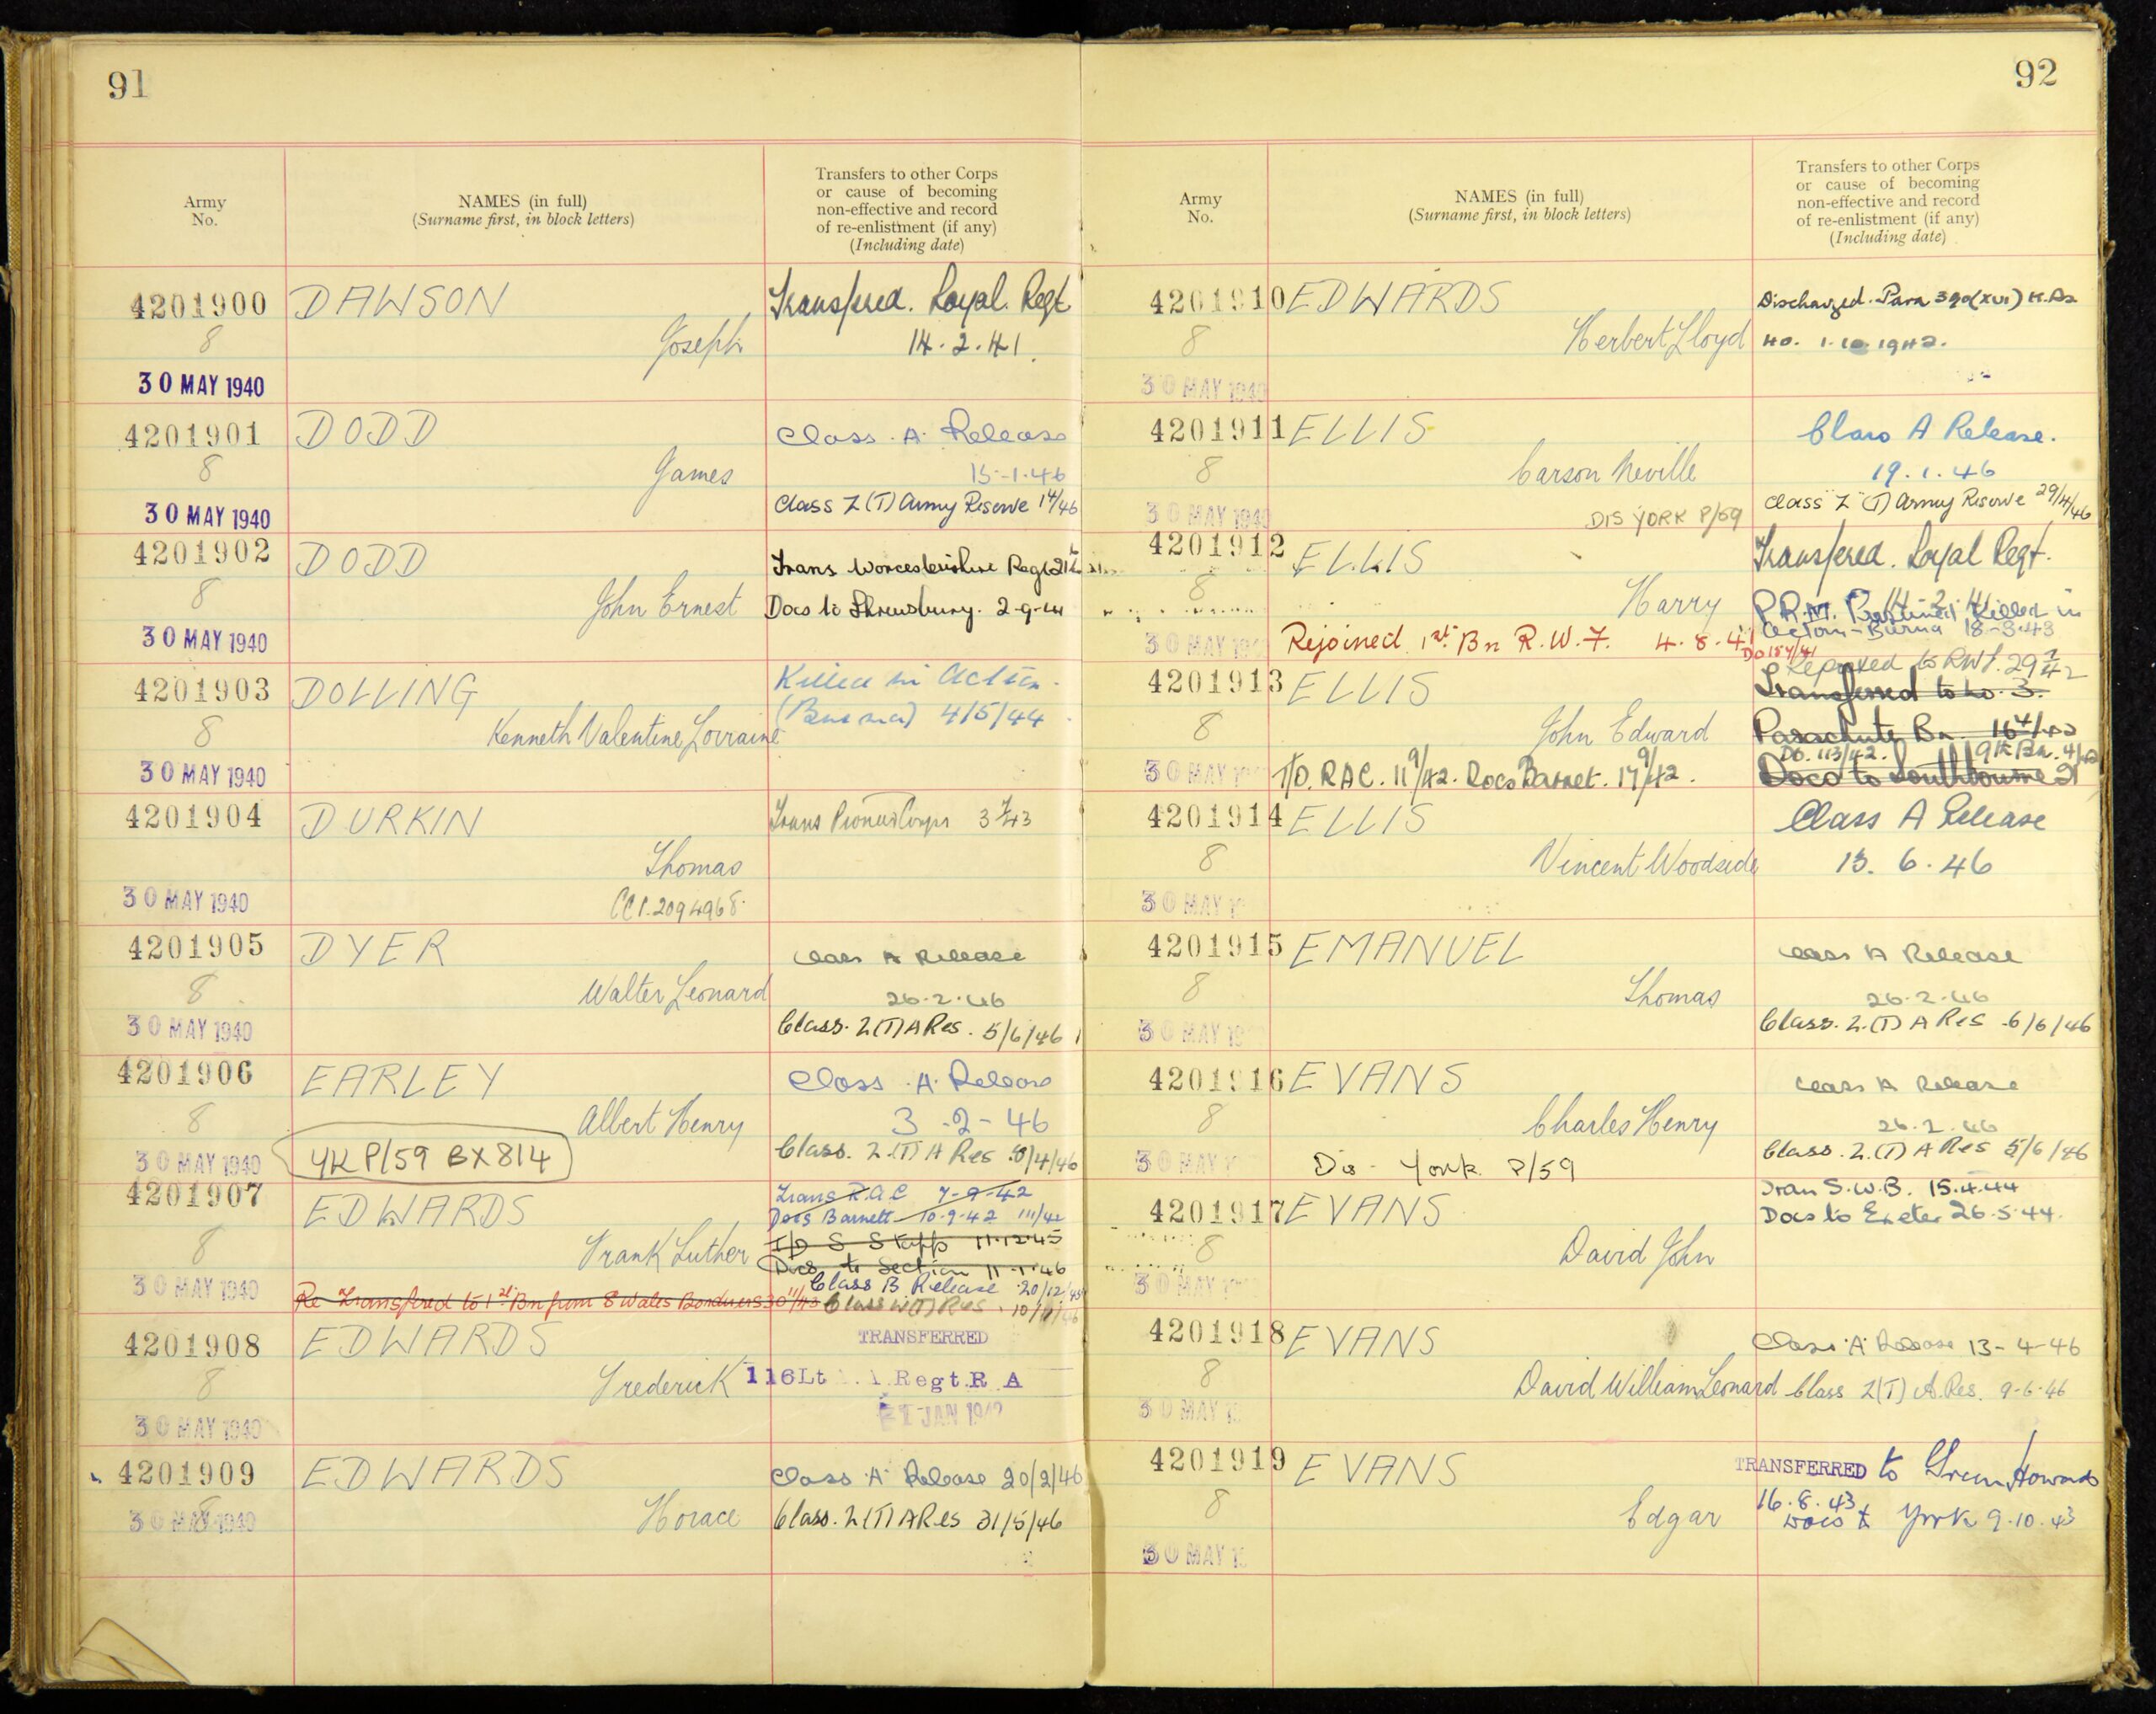 91
Army
No.
NAMES (in full)
(Surname first, in block letters)
Transfers to other Corps
or cause of becoming
non-effective and record
of re-enlistment (if any)
(Including date)
4201900 DAWSON Transfered. Loyal. Regt
8 Joseph 14.2.41.
30 MAY 1940
4201901 DODD Class. A. Release
8 James 15-1-46
30 MAY 1940 Class Z (T) Army Reserve 14/46
4201902 DODD Trans Worcestershire Regt
8 John Ernest Docs to Shrewsbury. 2-9-41
30 MAY 1940
4201903 DOLLING Killed in Action.
8 Kenneth Valentine Lorraine (Burma) 4/5/44
30 MAY 1940
4201904 DURKIN Trans Pioneer Corps
8 Thomas
30 MAY 1940
4201905 DYER Class A Release
8 Walter Leonard 26.2.46
30 MAY 1940 Class. Z (T) A Res. 5/6/46
4201906 EARLEY Class. A. Release
8 Albert Henry 3-2-46
30 MAY 1940 YK P/59 BX814 Class. Z (T) A Res /4/46
4201907 EDWARDS Trans R.A.C 7-9-42
Docs Barnett 10-9-42
8 Frank Luther S Staffs 11.12.45
Docs to Section 11-1-46
30 MAY 1940 Class B Release 20/12/45
Re Transfered to 1st Bn from 8 Wales Borderers 30 11/43 Class W(T) Res
4201908 EDWARDS TRANSFERRED
8 Frederick 116 Lt A.A Regt. R A
30 MAY 1940 JAN 1942
4201909 EDWARDS Class 'A' Release 20/2/46
8 30 MAY 1940 Horace Class. Z (T) A Res 31/5/46
92
Army
No.
NAMES (in full)
(Surname first, in block letters)
Transfers to other Corps
or cause of becoming
non-effective and record
of re-enlistment (if any)
(Including date)
4201910 EDWARDS Discharged. Para 390 (XVI) K.Rs
8 Herbert Lloyd 40. 1.10.1942.
30 MAY 1940
4201911 ELLIS Class A Release.
8 Carson Neville 19.1.46
30 MAY 1940 DIS YORK P/59 Class Z (T) Army Reserve 29/4/46
4201912 ELLIS Transfered. Loyal Regt.
8 Harry 14-2-41
Killed in
Action-Burma 18-3-43
30 MAY 1940 Rejoined 1st Bn R.W.F. 4.8.41
4201913 ELLIS Reposted to RWF.
Transferred to No. 3.
8 John Edward Parachute Bn.
DO. 113/42.
30 MAY T/O. RAC. 11 9/42. Docs Barnet. 17 9/42. Docs to Southbourne
4201914 ELLIS Class A Release
8 Vincent Woodside 13.6.46
30 MAY
4201915 EMANUEL Class A Release
8 Thomas 26.2.46
30 MAY Class. Z. (T) A Res 6/6/46
4201916 EVANS Class A Release
8 Charles Henry 26.2.46
30 MAY Dis - York P/59 Class. Z. (T) A Res 5/6/46
4201917 EVANS Tran S.W.B. 15.4.44
Docs to Exeter 26.5.44.
8 David John
30 MAY
4201918 EVANS Class 'A' Release 13-4-46
8 David William Leonard Class Z (T) A. Res. 9-6-46
30 MAY
4201919 EVANS TRANSFERRED to Green Howards
8 Edgar 16.8.43
Docs to York 9.10.43
30 MAY